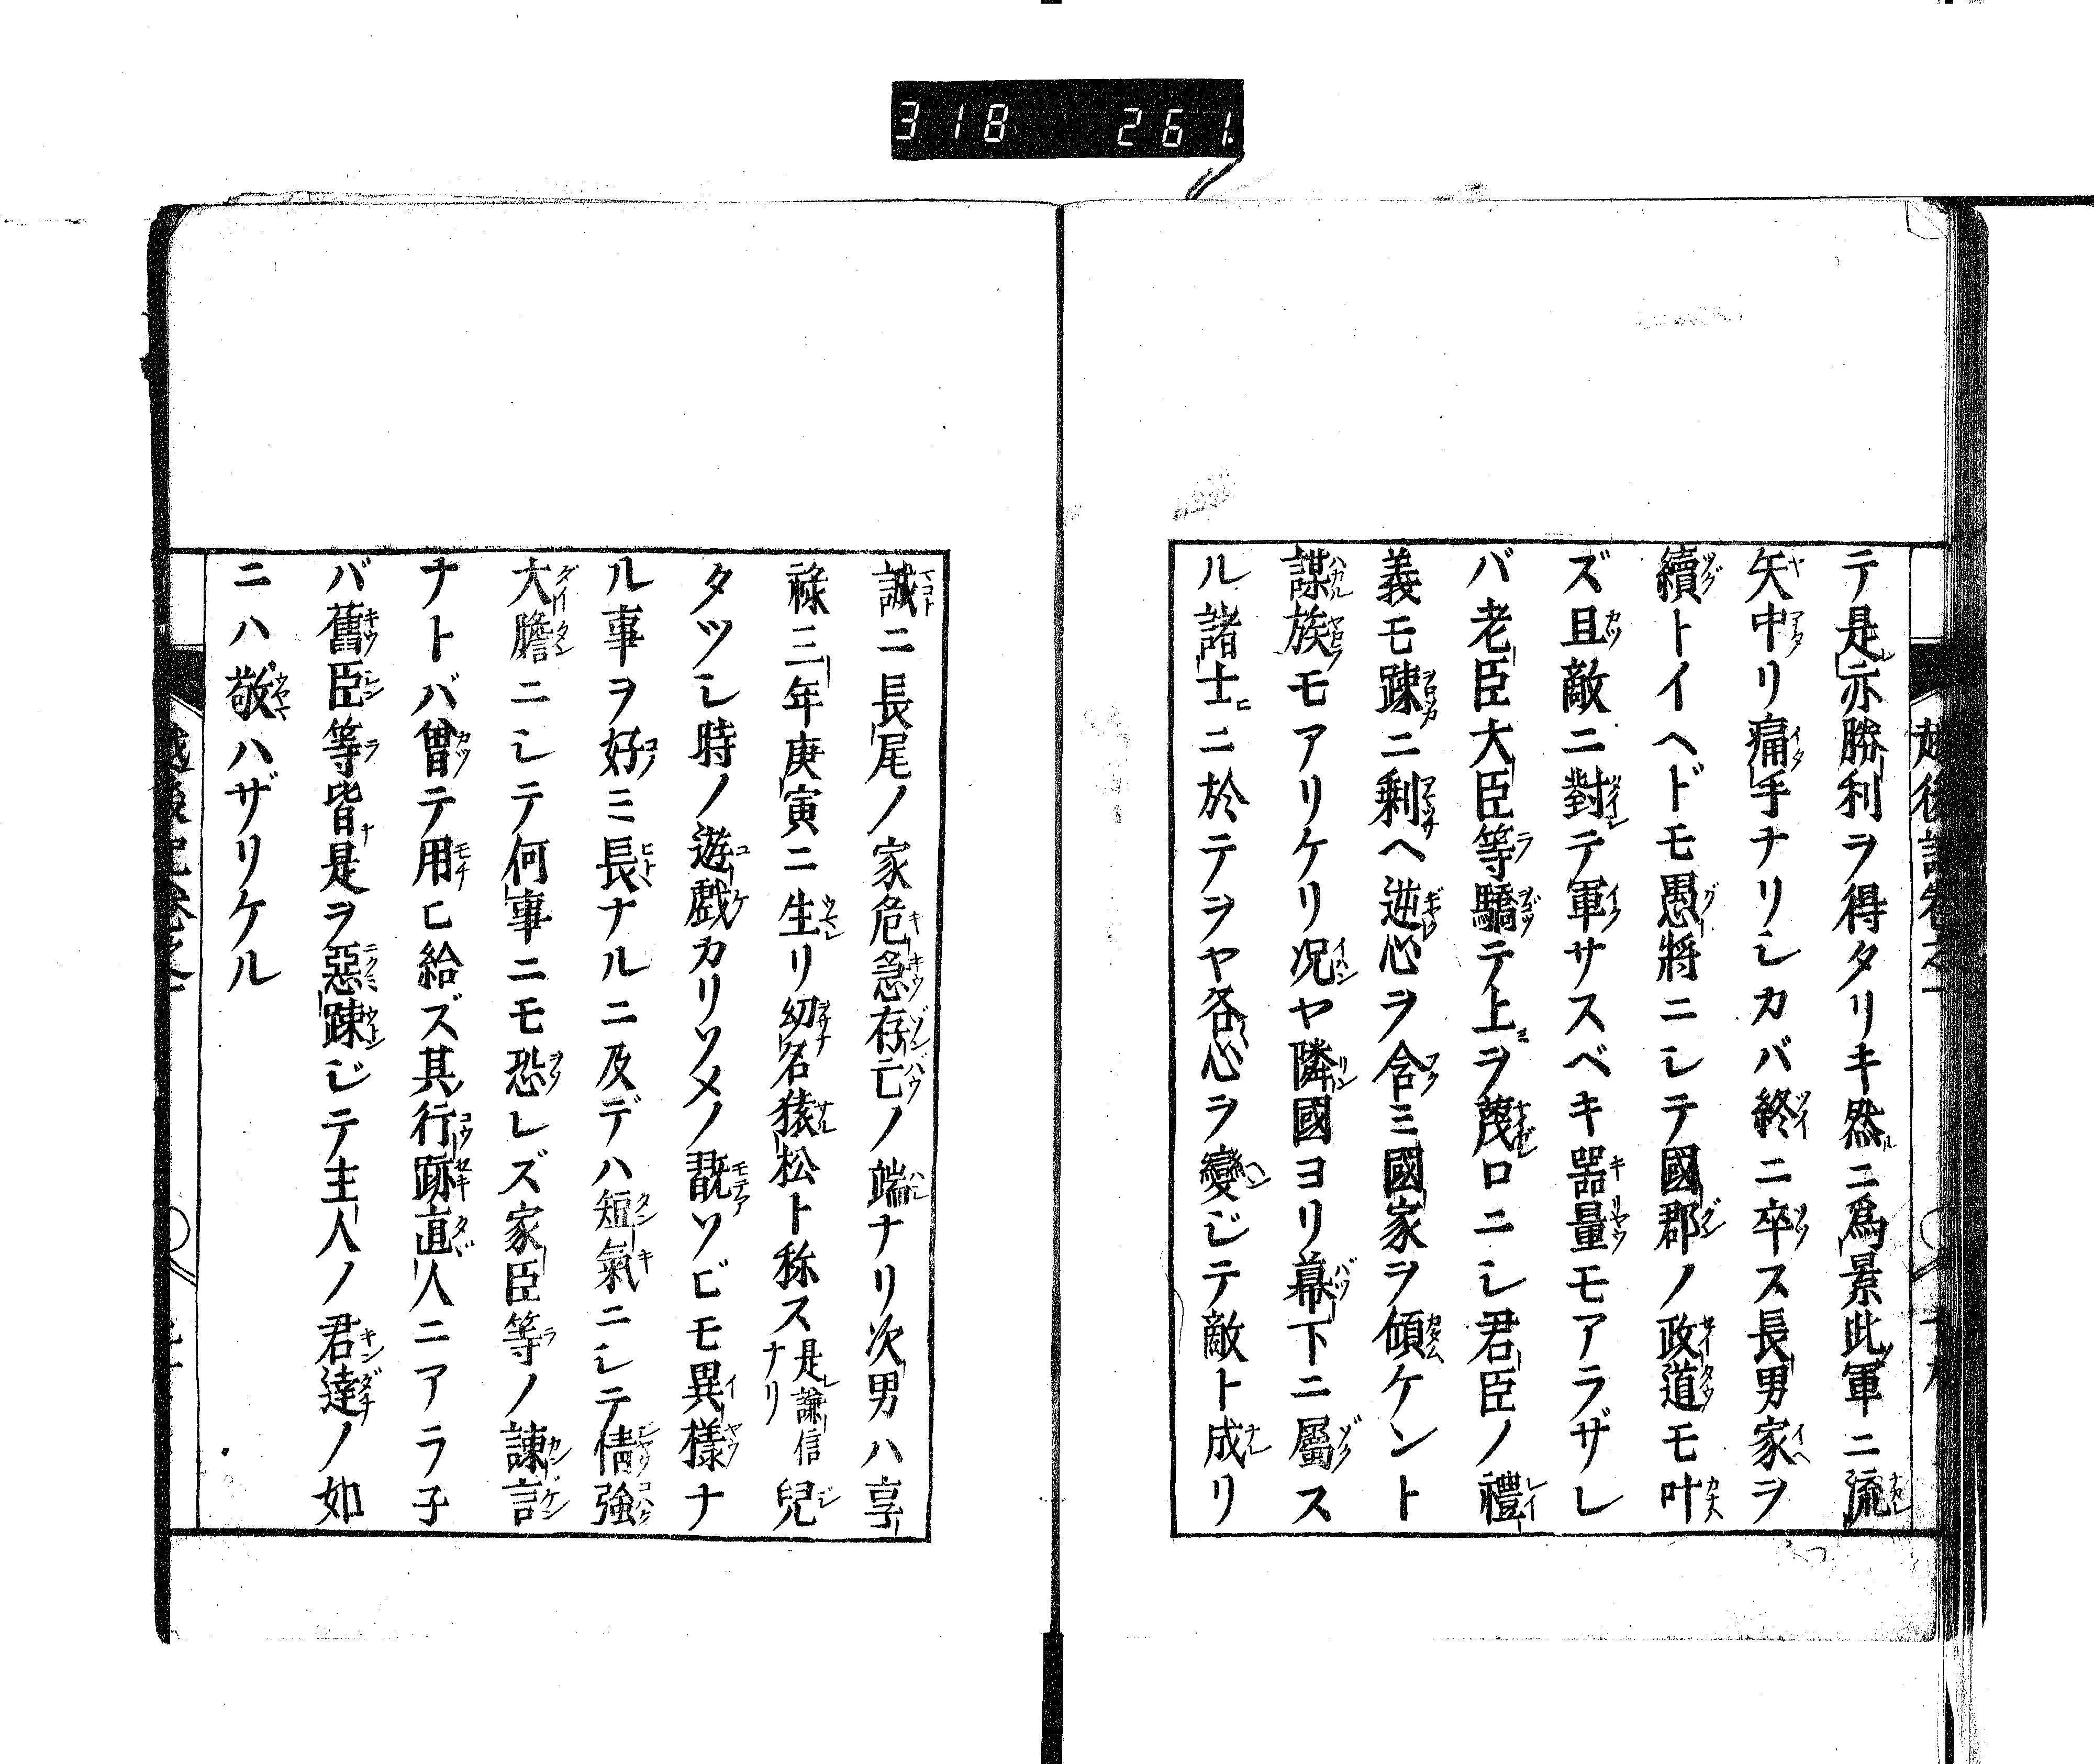 318 261
テ是亦勝利ヲ得タリキ然ニ爲景此軍ニ流
矢中リ痛手ナリシカバ終ニ卒ス長男家ヲ
續トイヘドモ愚將ニシテ國郡ノ政道モ叶
ズ且敵ニ對テ軍サスベキ器量モアラザレ
バ老臣大臣等驕テ上ヲ蔑ロニシ君臣ノ禮
義モ踈ニ剰ヘ逆心ヲ含ミ國家ヲ傾ケント
謀族モアリケリ況ヤ隣國ヨリ幕下ニ屬ス
ル諸士ニ於テヲヤ各心ヲ變ジテ敵ト成リ
誠ニ長尾ノ家危急存亡ノ端ナリ次男ハ享
祿三年庚寅ニ生リ幼名猿松ト称ス是謙信ナリ兒
タツシ時ノ遊戯カリソメノ翫ソビモ異樣ナ
ル事ヲ好ミ長ナルニ及デハ短氣ニシテ情強
大膽ニシテ何事ニモ恐レズ家臣等ノ諫言
ナトバ曽テ用ヒ給ズ其行跡直人ニアラ子
バ舊臣等皆是ヲ惡踈ジテ主人ノ君達ノ如
ニハ敬ハザリケル